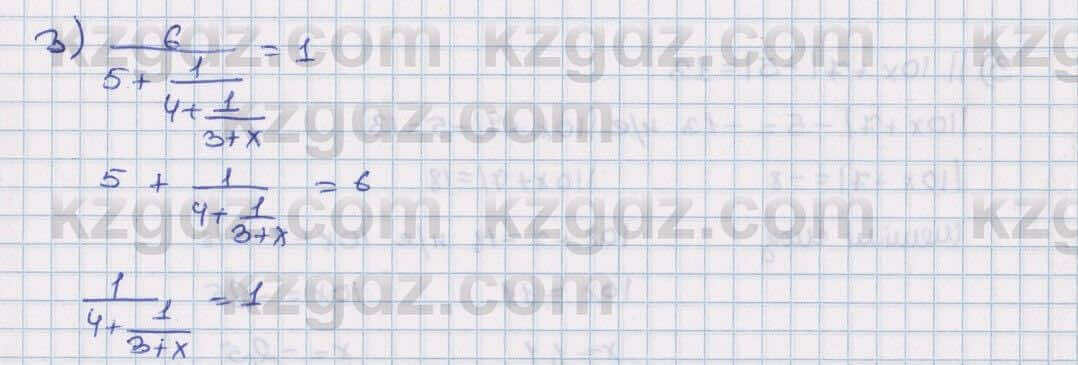 3) 6 / (5 + 1 / (4 + 1 / (3 + x))) = 1
5 + 1 / (4 + 1 / (3 + x)) = 6
1 / (4 + 1 / (3 + x)) = 1
kzgdz.com kzgdz.com kzg
kzgdz.com
kzgdz.com kzgdz.com kzg
kzgdz.com